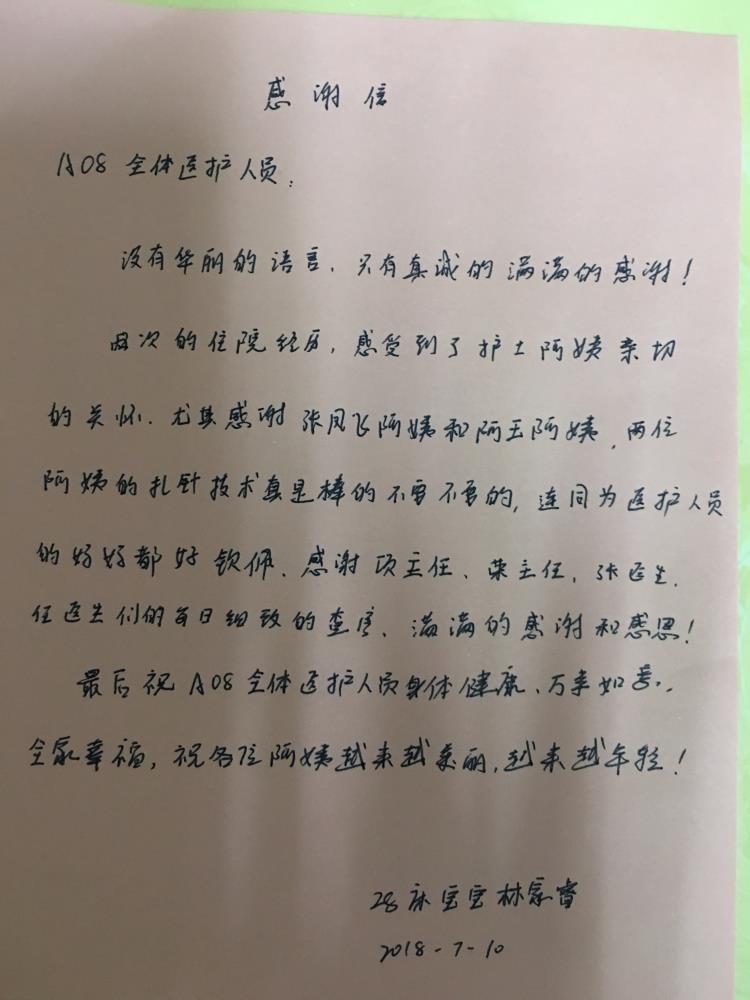 感谢信
A08全体医护人员:
没有华丽的语言,只有真诚的满满的感谢!
两次的住院经历,感受到了护士阿姨亲切
的关怀.尤其感谢张凤飞阿姨和阿玉阿姨,两位
阿姨的扎针技术真是棒的不要不要的,连同为医护人员
的妈妈都好钦佩、感谢项主任、荣主任,张医生.
任医生们的每日细致的查房、满满的感谢和感恩!
最后祝A08全体医护人员身体健康、万事如意.
全家幸福,祝各位阿姨越来越美丽,越来越年轻!
28床宝宝林家睿
2018-7-10